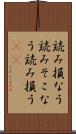 読み損なう
読みそこな
う読み損う